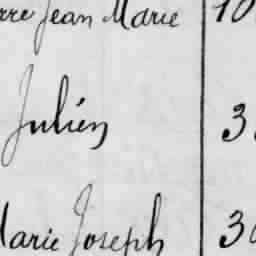 Jean Marie 10
Julien 3
Marie Joseph 30